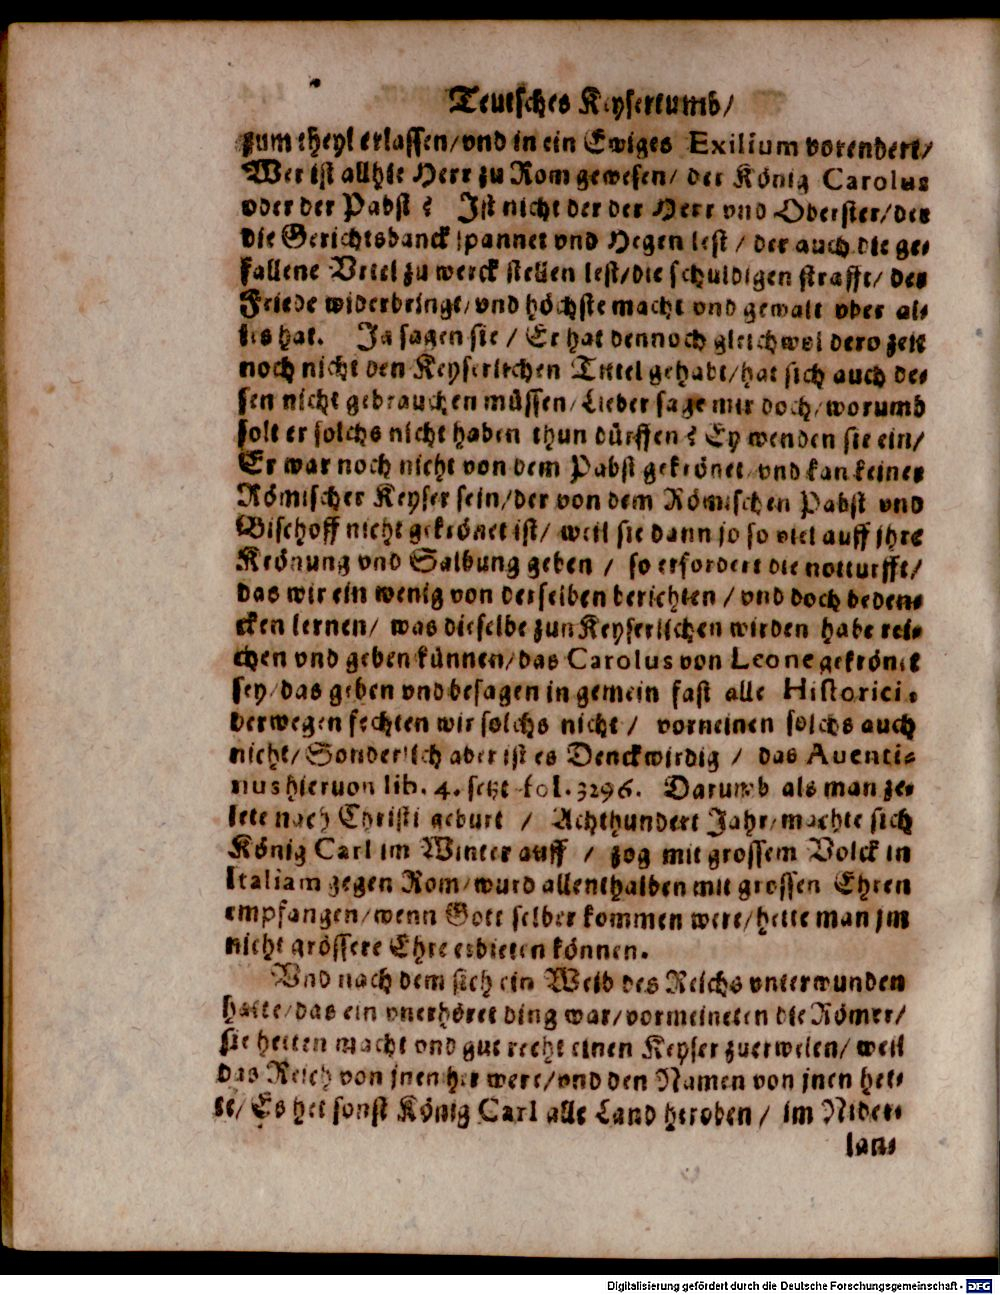 Teutsches Keysertumb/
zum theyl erlassen/vnd in ein Ewiges Exilium vorendert/
Wer ist allhie Herr zu Rom gewesen/ der König Carolus
oder der Pabst? Ist nicht der der Herr vnd Oberster/der
die Gerichtsbanck spannet vnd Hegen lest / der auch die ge-
fallene Vrtel zu werck stellen lest/die schuldigen strafft/ der
Friede widerbringt/vnd höchste macht vnd gewalt vber al-
les hat. Ja sagen sie / Er hat dennoch gleichwol dero zeit
noch nicht den Keyserlichen Tittel gehabt/hat sich auch des-
sen nicht gebrauchen müssen/Lieber sage mir doch/worumb
solt er solchs nicht haben thun dürffen? Ey wenden sie ein/
Er war noch nicht von dem Pabst gekrönet/vnd kan keiner
Römischer Keyser sein/der von dem Römischen Pabst vnd
Bischoff nicht gekrönet ist/ weil sie dann jo so viel auff jhre
Krönung vnd Salbung geben / so erfordert die notturfft/
das wir ein wenig von derselben berichten / vnd doch beden-
cken lernen/ was dieselbe zun Keyserlichen wirden habe rei-
chen vnd geben künnen/das Carolus von Leone gekrönet
sey/das geben vnd besagen in gemein fast alle Historici,
derwegen fechten wir solchs nicht / vorneinen solchs auch
nicht/ Sonderlich aber ist es Denckwirdig / das Auenti-
nus hieruon lib. 4. setzt fol. 3296. Darumb als man ze-
lete nach Christi geburt / Achthundert Jahr/machte sich
König Carl im Winter auff / zog mit grossem Volck in
Italiam gegen Rom/wurd allenthalben mit grossen Ehren
empfangen/wenn Gott selber kommen were/hette man jm
nicht grössere Ehre erbieten können.
Vnd nach dem sich ein Weib des Reichs vnterwunden
hatte/das ein vnerhöret ding war/vormeineten die Römer/
sie hetten macht vnd gut recht einen Keyser zuerwelen/ weil
das Reich von jnen her were/vnd den Namen von jnen het-
te/ Es het sonst König Carl alle Land heroben / im Nider-
lan-
Digitalisierung gefördert durch die Deutsche Forschungsgemeinschaft - DFG